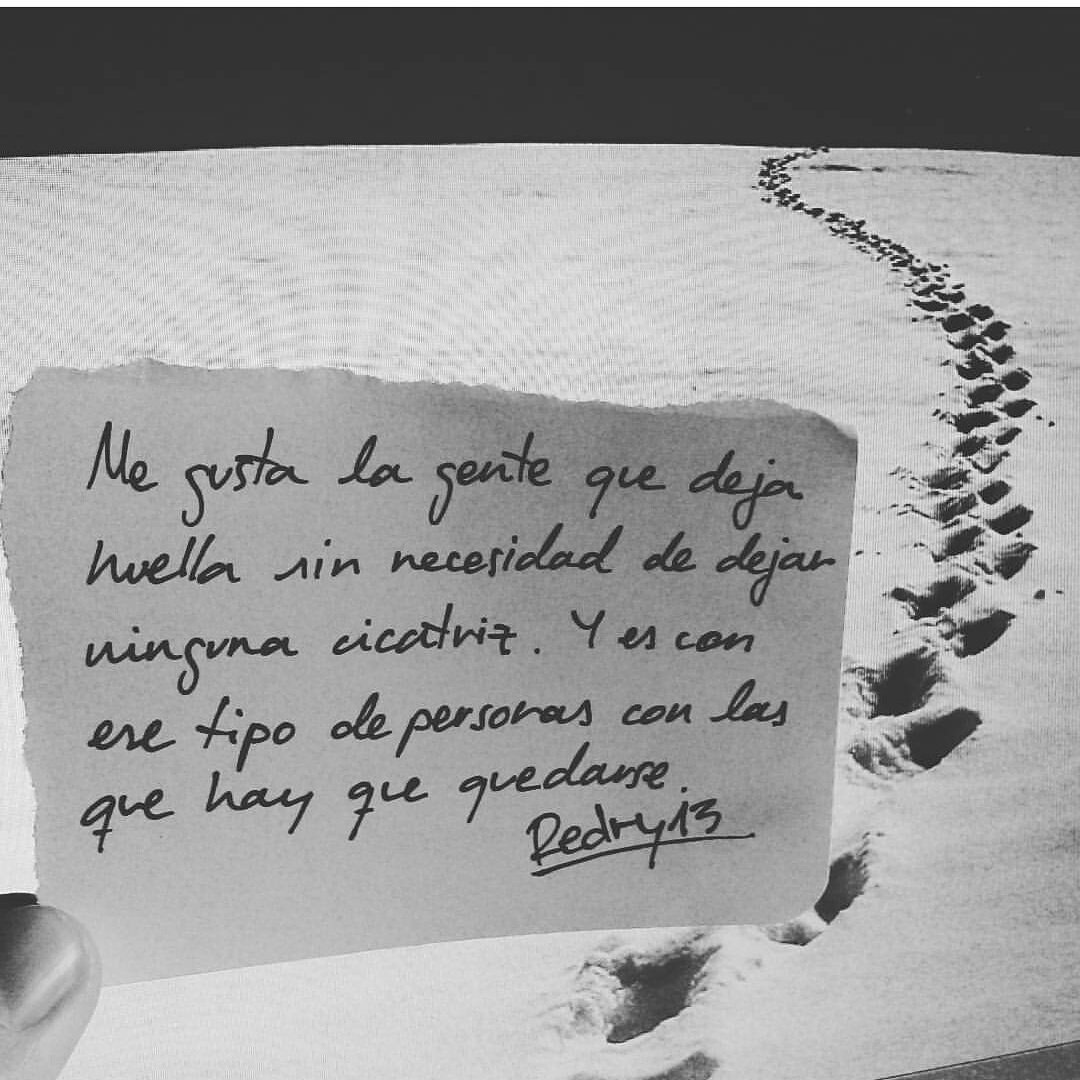 Me gusta la gente que deja
huella sin necesidad de dejar
ninguna cicatriz. Y es con
ese tipo de personas con las
que hay que quedarse.
Redry13